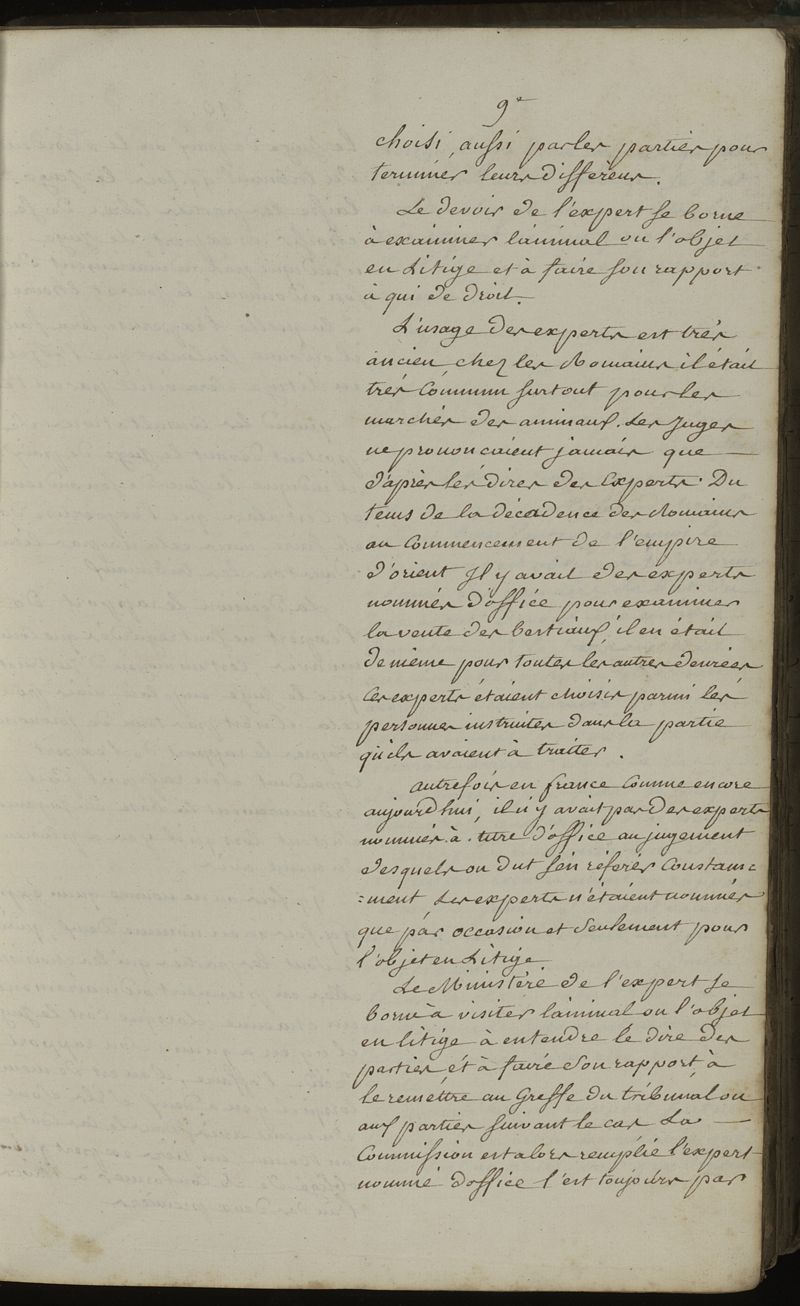 9e
choisi aussi par les parties pour
terminer leurs differens.
Le devoir de l'expert se borne
à examiner l'animal ou l'objet
en Litige et à faire son rapport
à qui de droit.
L'usage des experts est très
ancien, chez les Romains il était
très Commun surtout pour les
marchés des animaux. Les Juges
ne prononcaient jamais que
d'après les dires des Experts. Du
tems de la décadence des Romains
au Commencement de l'empire
d'orient Il y avait des experts
nommés d'office pour examiner
la vente des bestiaux, il en était
de même pour toutes les autres denrées
Ces experts étaient choisis parmi les
personnes instruites dans la partie
qu'ils avaient à traiter.
autrefois en france Comme encore
aujourd'hui, il n'y avait pas des experts
nommés à titre d'office au jugement
desquels on dut s'en réferér Constam=
=ment Les experts n'étaient nommés
que par occasion et Seulement pour
l'objet en Litige
Le Ministère de l'expert se
borne à visiter l'animal ou l'objet
en litige à entendre le dire des
parties et à faire Son rapport, à
le remettre au Greffe du tribunal ou
aux parties suivant le cas La
Commission est alors remplie l'expert
nommé d'office l'est toujours par